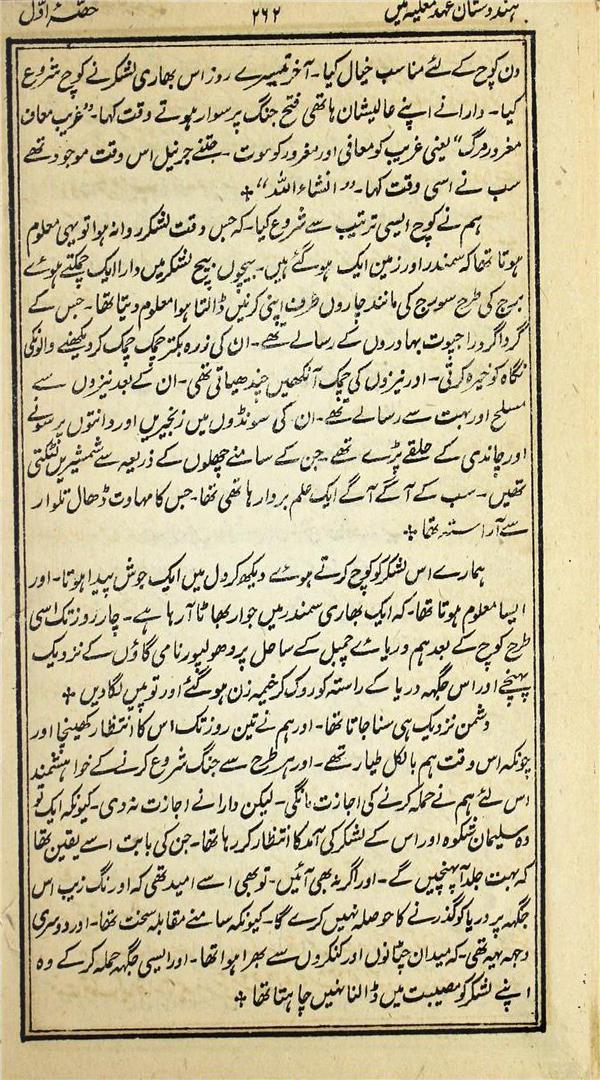 ہندوستان عہد مغلیہ میں ۲۶۲ حصۂ اوّل
دن کوچ کے لئے مناسب خیال کیا۔ آخر تیسرے روز اس بھاری لشکر نے کوچ شروع
کیا۔ دارا نے اپنے عالیشان ہاتھی فتح جنگ پر سوار ہوتے وقت کہا۔ "غریب معاف
مغرور مرگ" یعنی غریب کو معافی اور مغرور کو موت۔ جتنے جرنیل اس وقت موجود تھے
سب نے اسی وقت کہا۔ "انشاء اللہ" +
ہم نے کوچ ایسی ترتیب سے شروع کیا۔ کہ جس وقت لشکر روانہ ہوا تو یہی معلوم
ہوتا تھا کہ سمندر اور زمین ایک ہو گئے ہیں۔ بیچوں بیچ لشکر میں دارا ایک چمکتے ہوئے
برج کی طرح سورج کی مانند چاروں طرف اپنی کرنیں ڈالتا ہوا معلوم دیتا تھا۔ جس کے
گرداگرد راجپوت بہادروں کے رسالے تھے۔ ان کی زرہ بکتر چمک چمک کر دیکھنے والونکی
نگاہ کو خیرہ کرتی۔ اور نیزوں کی چمک آنکھیں چندھیاتی تھی۔ ان کے بعد نیزوں سے
مسلح اور بہت سے رسالے تھے۔ ان کی سونڈوں میں زنجیریں اور دانتوں پر سونے
اور چاندی کے حلقے پڑے تھے۔ جن کے سامنے چھلوں کے ذریعہ سے شمشیریں لٹکتی
تھیں۔ سب کے آگے آگے ایک علم بردار ہاتھی تھا۔ جس کا مہاوت ڈھال تلوار
سے آراستہ تھا +
ہمارے اس لشکر کو کوچ کرتے ہوئے دیکھ کر دل میں ایک جوش پیدا ہوتا۔ اور
ایسا معلوم ہوتا تھا۔ کہ ایک بھاری سمندر میں جوار بھاٹا آ رہا ہے۔ چار روز تک اسی
طرح کوچ کے بعد ہم دریائے چمبل کے ساحل پر دھولپور نامی گاؤں کے نزدیک
پہنچے اور اس جگہہ دریا کے راستہ کو روک کر خیمہ زن ہو گئے اور توپیں لگا دیں +
دشمن نزدیک ہی سنا جاتا تھا۔ اور ہم نے تین روز تک اس کا انتظار کھینچا اور
چونکہ اس وقت ہم بالکل طیار تھے۔ اور ہر طرح سے جنگ شروع کرنے کے خواہشمند
اس لئے ہم نے حملہ کرنے کی اجازت مانگی۔ لیکن دارا نے اجازت نہ دی۔ کیونکہ ایک تو
وہ سلیمان شکوہ اور اس کے لشکر کی آمد کا انتظار کر رہا تھا۔ جن کی بابت اسے یقین تھا
کہ بہت جلد آ پہنچیں گے۔ اور اگر نہ بھی آئیں۔ تو بھی اسے امید تھی کہ اورنگ زیب اس
جگہہ پر دریا کو گذرنے کا حوصلہ نہیں کرے گا۔ کیونکہ سامنے مقابلہ سخت تھا۔ اور دوسری
وجہ یہہ تھی۔ کہ میدان چٹانوں اور کنکروں سے بھرا ہوا تھا۔ اور ایسی جگہہ حملہ کر کے وہ
اپنے لشکر کو مصیبت میں ڈالنا نہیں چاہتا تھا +